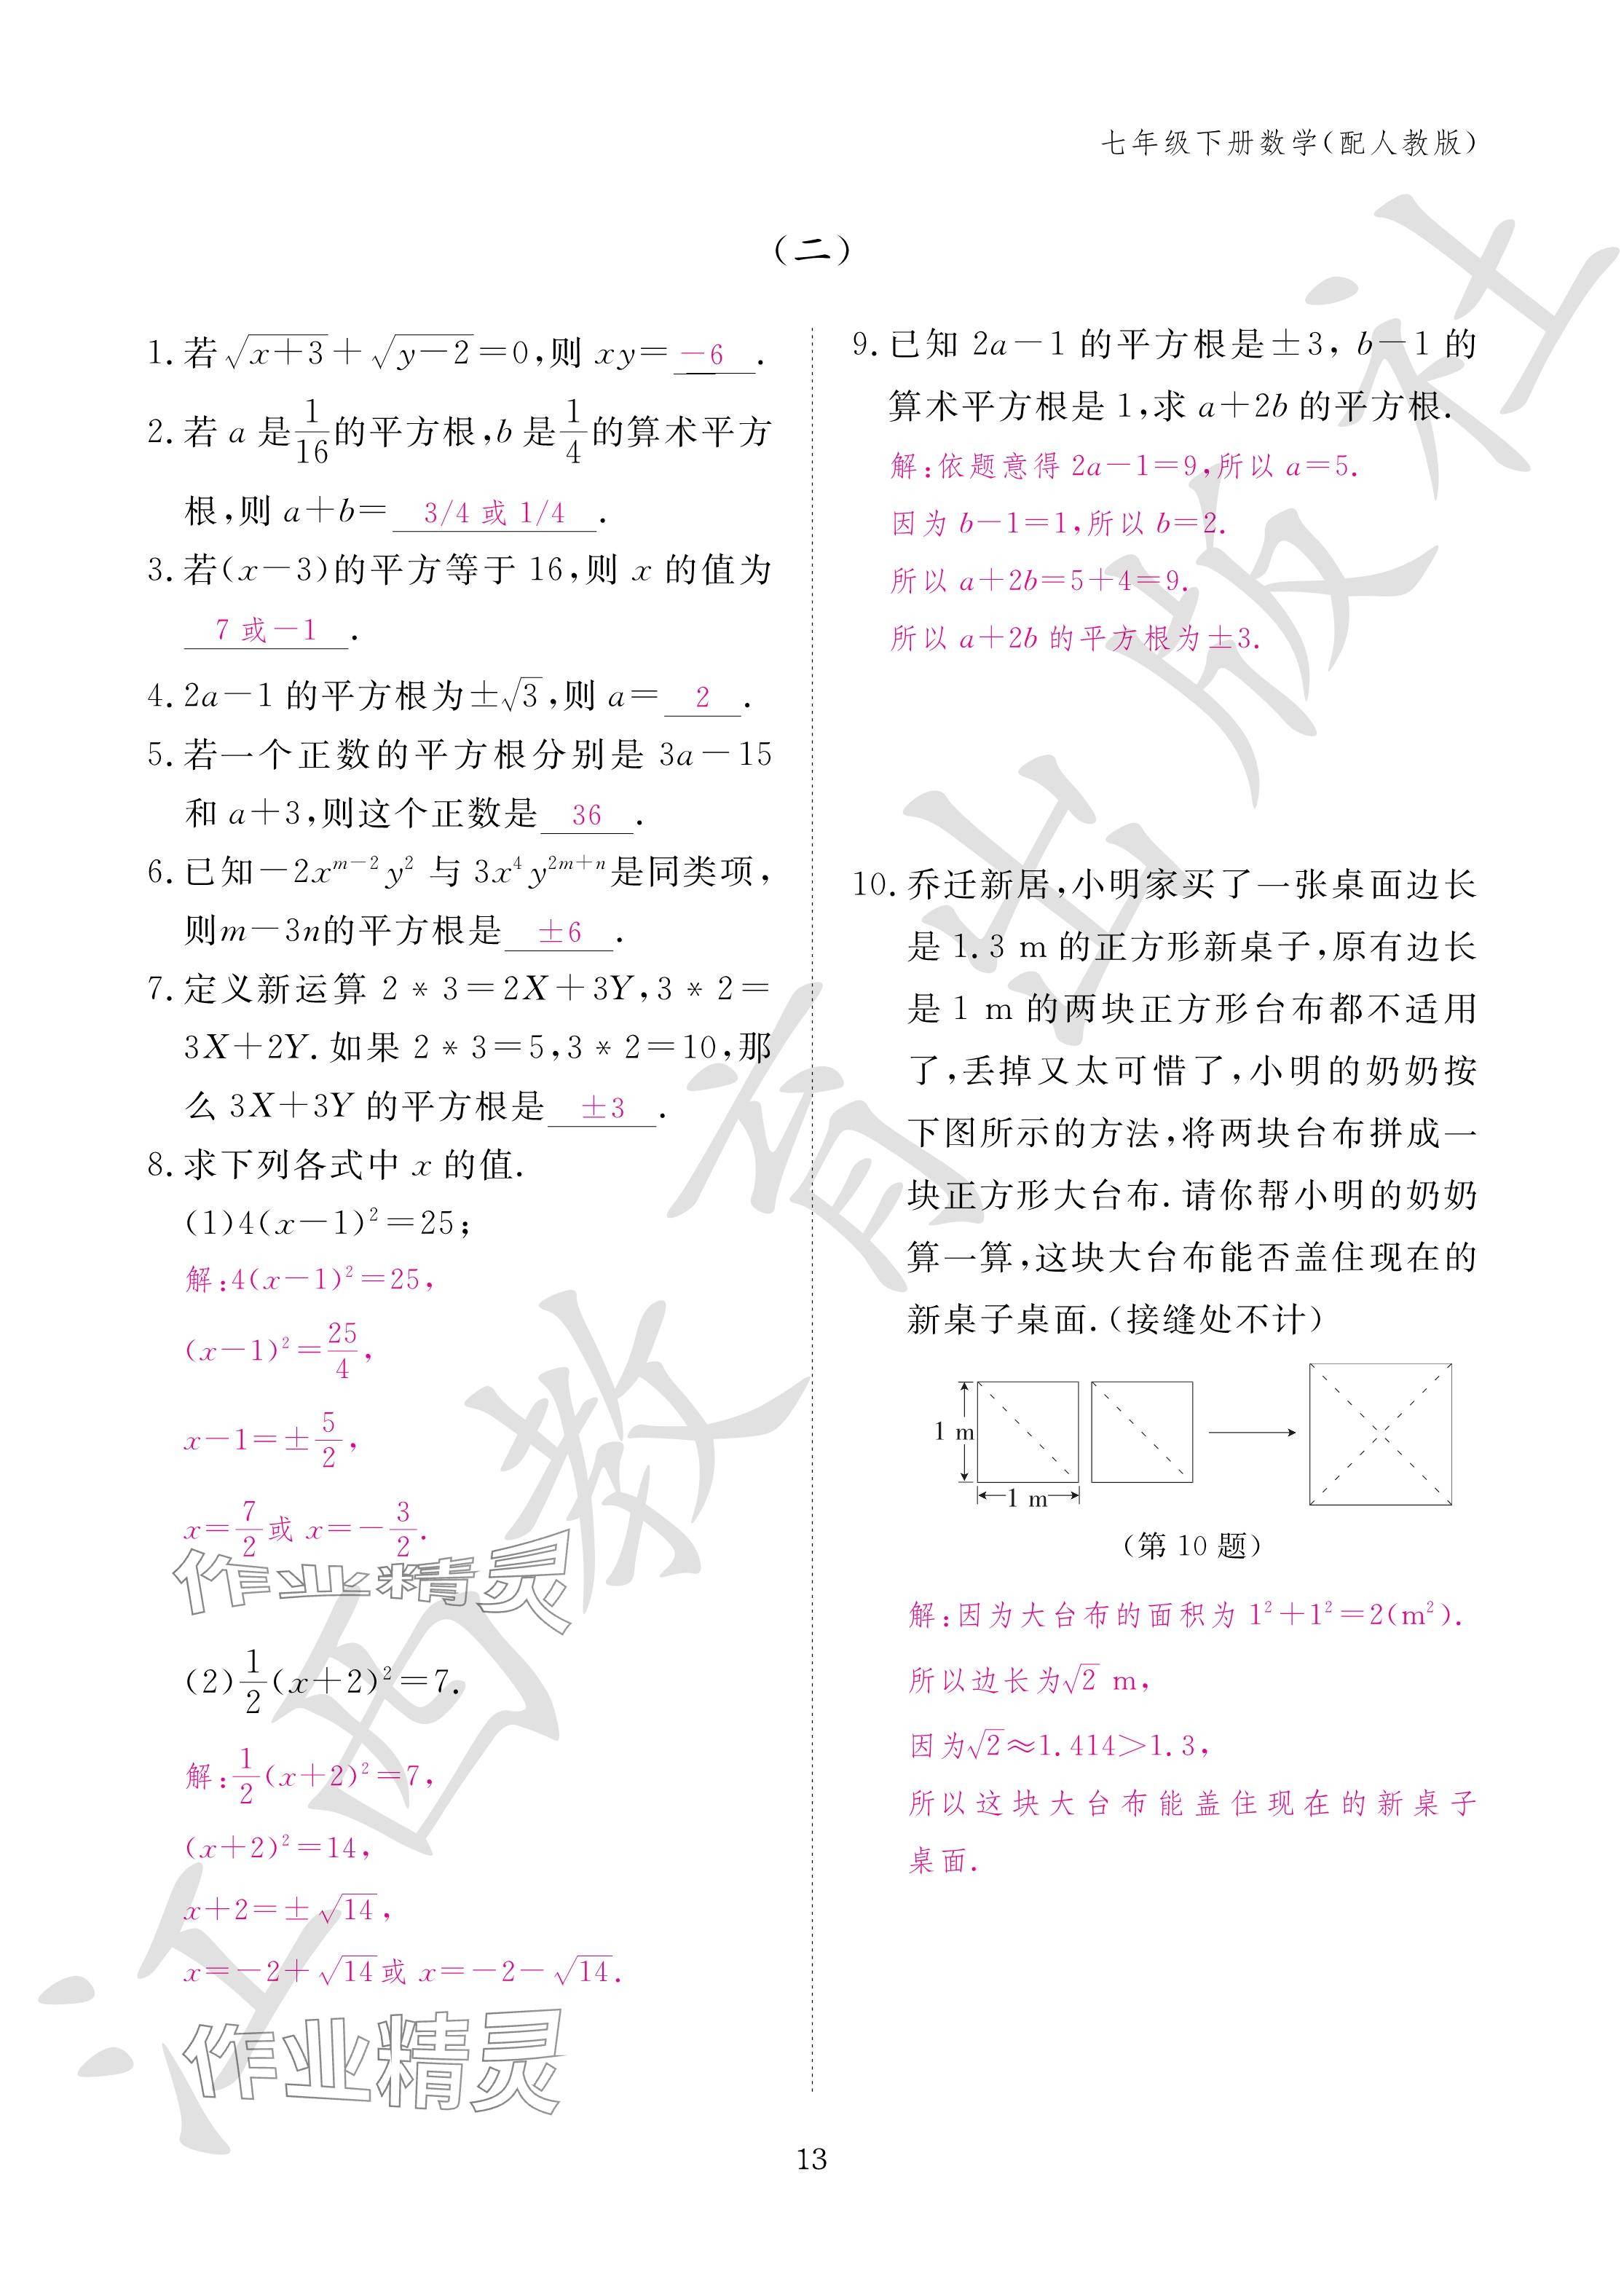 七年级下册数学(配人教版)
(二)
1. 若√(x+3)+√(y−2)=0,则 xy= −6 .
2. 若 a 是1/16的平方根,b 是1/4的算术平方
根,则 a+b= 3/4 或 1/4 .
3. 若(x−3)的平方等于 16,则 x 的值为
7 或−1 .
4. 2a−1 的平方根为±√3,则 a= 2 .
5. 若一个正数的平方根分别是 3a−15
和 a+3,则这个正数是 36 .
6. 已知−2x^(m−2)y² 与 3x⁴y^(2m+n)是同类项,
则m−3n的平方根是 ±6 .
7. 定义新运算 2 * 3=2X+3Y,3 * 2=
3X+2Y. 如果 2 * 3=5,3 * 2=10,那
么 3X+3Y 的平方根是 ±3 .
8. 求下列各式中 x 的值.
(1)4(x−1)²=25;
解:4(x−1)²=25,
(x−1)²=25/4,
x−1=±5/2,
x=7/2或 x=−3/2.
作业精灵
(2)1/2(x+2)²=7.
解:1/2(x+2)²=7,
(x+2)²=14,
x+2=±√14,
x=−2+√14或 x=−2−√14.
作业精灵
9. 已知 2a−1 的平方根是±3, b−1 的
算术平方根是 1,求 a+2b 的平方根.
解:依题意得 2a−1=9,所以 a=5.
因为 b−1=1,所以 b=2.
所以 a+2b=5+4=9.
所以 a+2b 的平方根为±3.
10. 乔迁新居,小明家买了一张桌面边长
是 1.3 m 的正方形新桌子,原有边长
是 1 m 的两块正方形台布都不适用
了,丢掉又太可惜了,小明的奶奶按
下图所示的方法,将两块台布拼成一
块正方形大台布. 请你帮小明的奶奶
算一算,这块大台布能否盖住现在的
新桌子桌面.(接缝处不计)
1 m
1 m
(第 10 题)
解:因为大台布的面积为 1²+1²=2(m²).
所以边长为√2 m,
因为√2≈1.414>1.3,
所以这块大台布能盖住现在的新桌子
桌面.
江西教育出版社
13